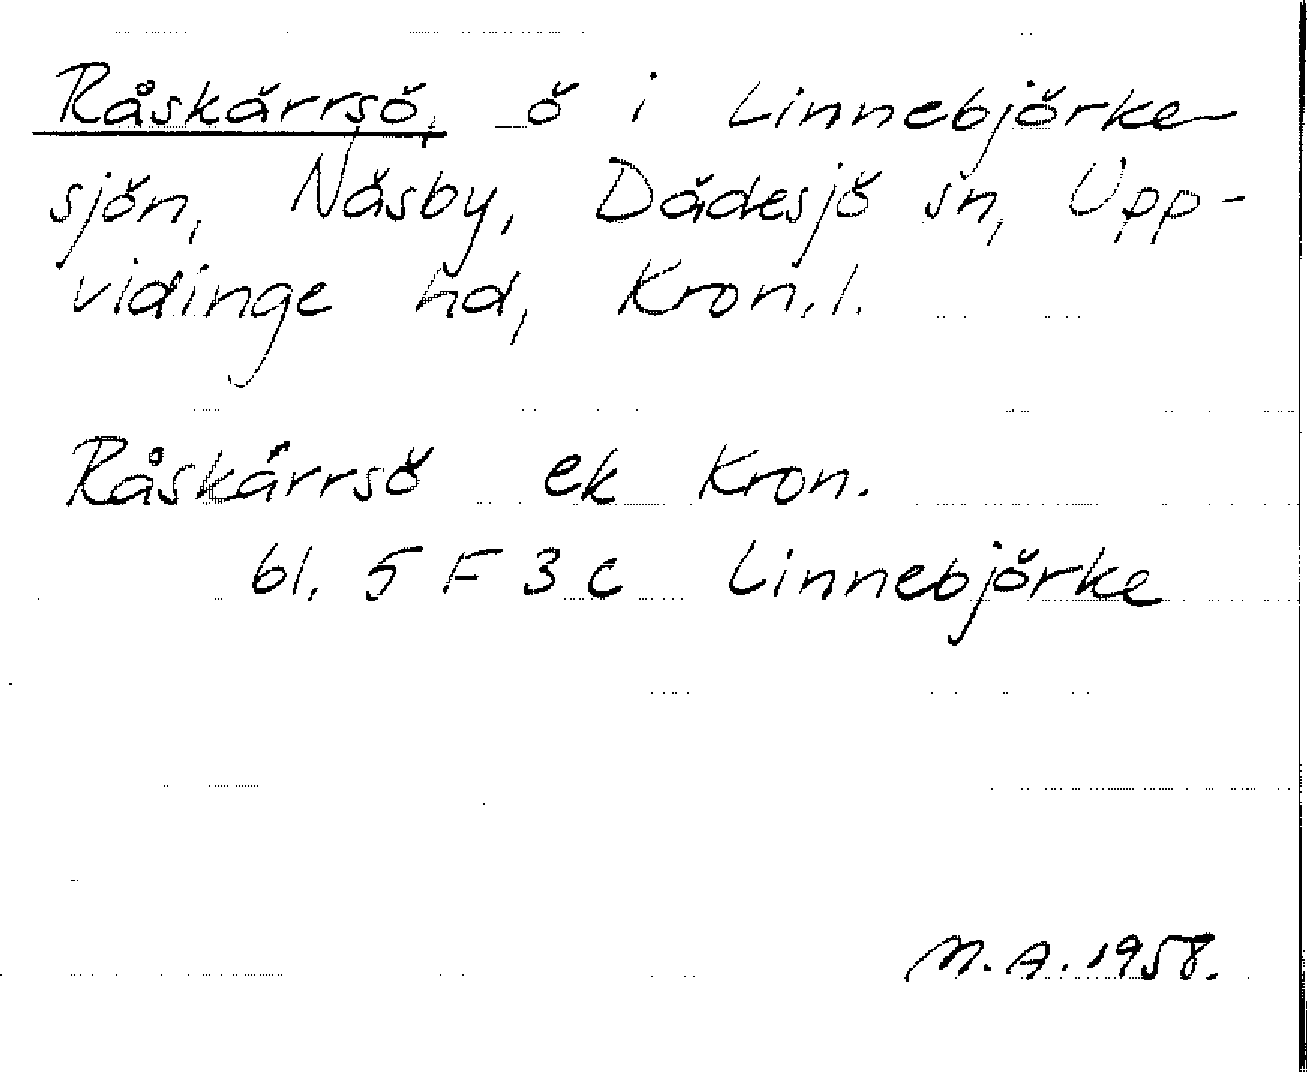 Råskärrsö, ö i Linnebjörke
sjön, Näsby, Dädesjö sn, Upp-
vidinge hd, Kron.l.
Råskärrsö ek Kron.
bl. 5 F 3 c Linnebjörke
M.A. 1958.